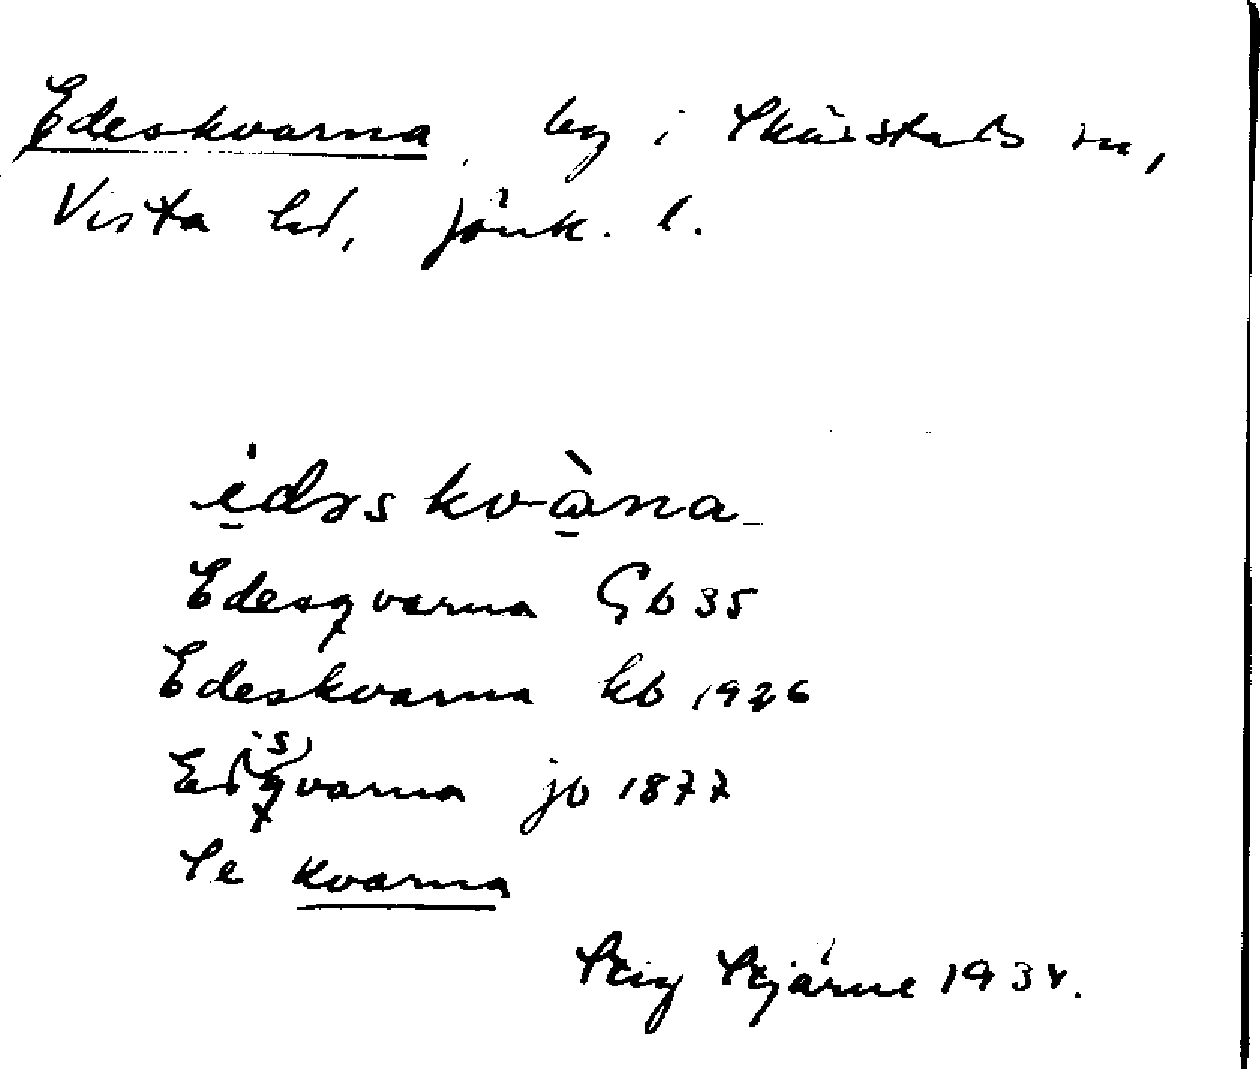 Edeskvarna, by i Skärstads sn,
Vista hd, Jönk. l.
èdəskvàna
Edesqvarna Gb 35
Edeskvarna kb 1926
Ed(is)qvarna jb 1877
Se kvarna
Stig Stjärne 1934.